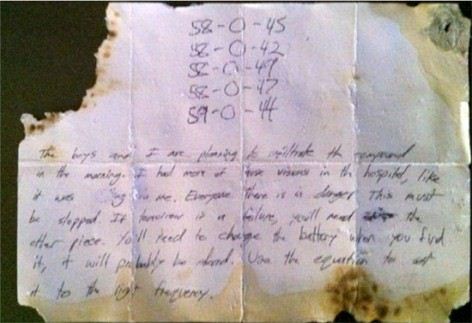 58-0-45
58-0-42
58-0-49
58-0-47
59-0-44
The boys and I are planning to infiltrate the compound
in the morning. I had more of those visions in the hospital, like
it was in me. Everyone there is in danger. This must
be stopped. If tomorrow is a failure, you'll need the
other piece. You'll need to change the battery when you find
it, it will probably be dead. Use the equation to set
it to the light frequency.